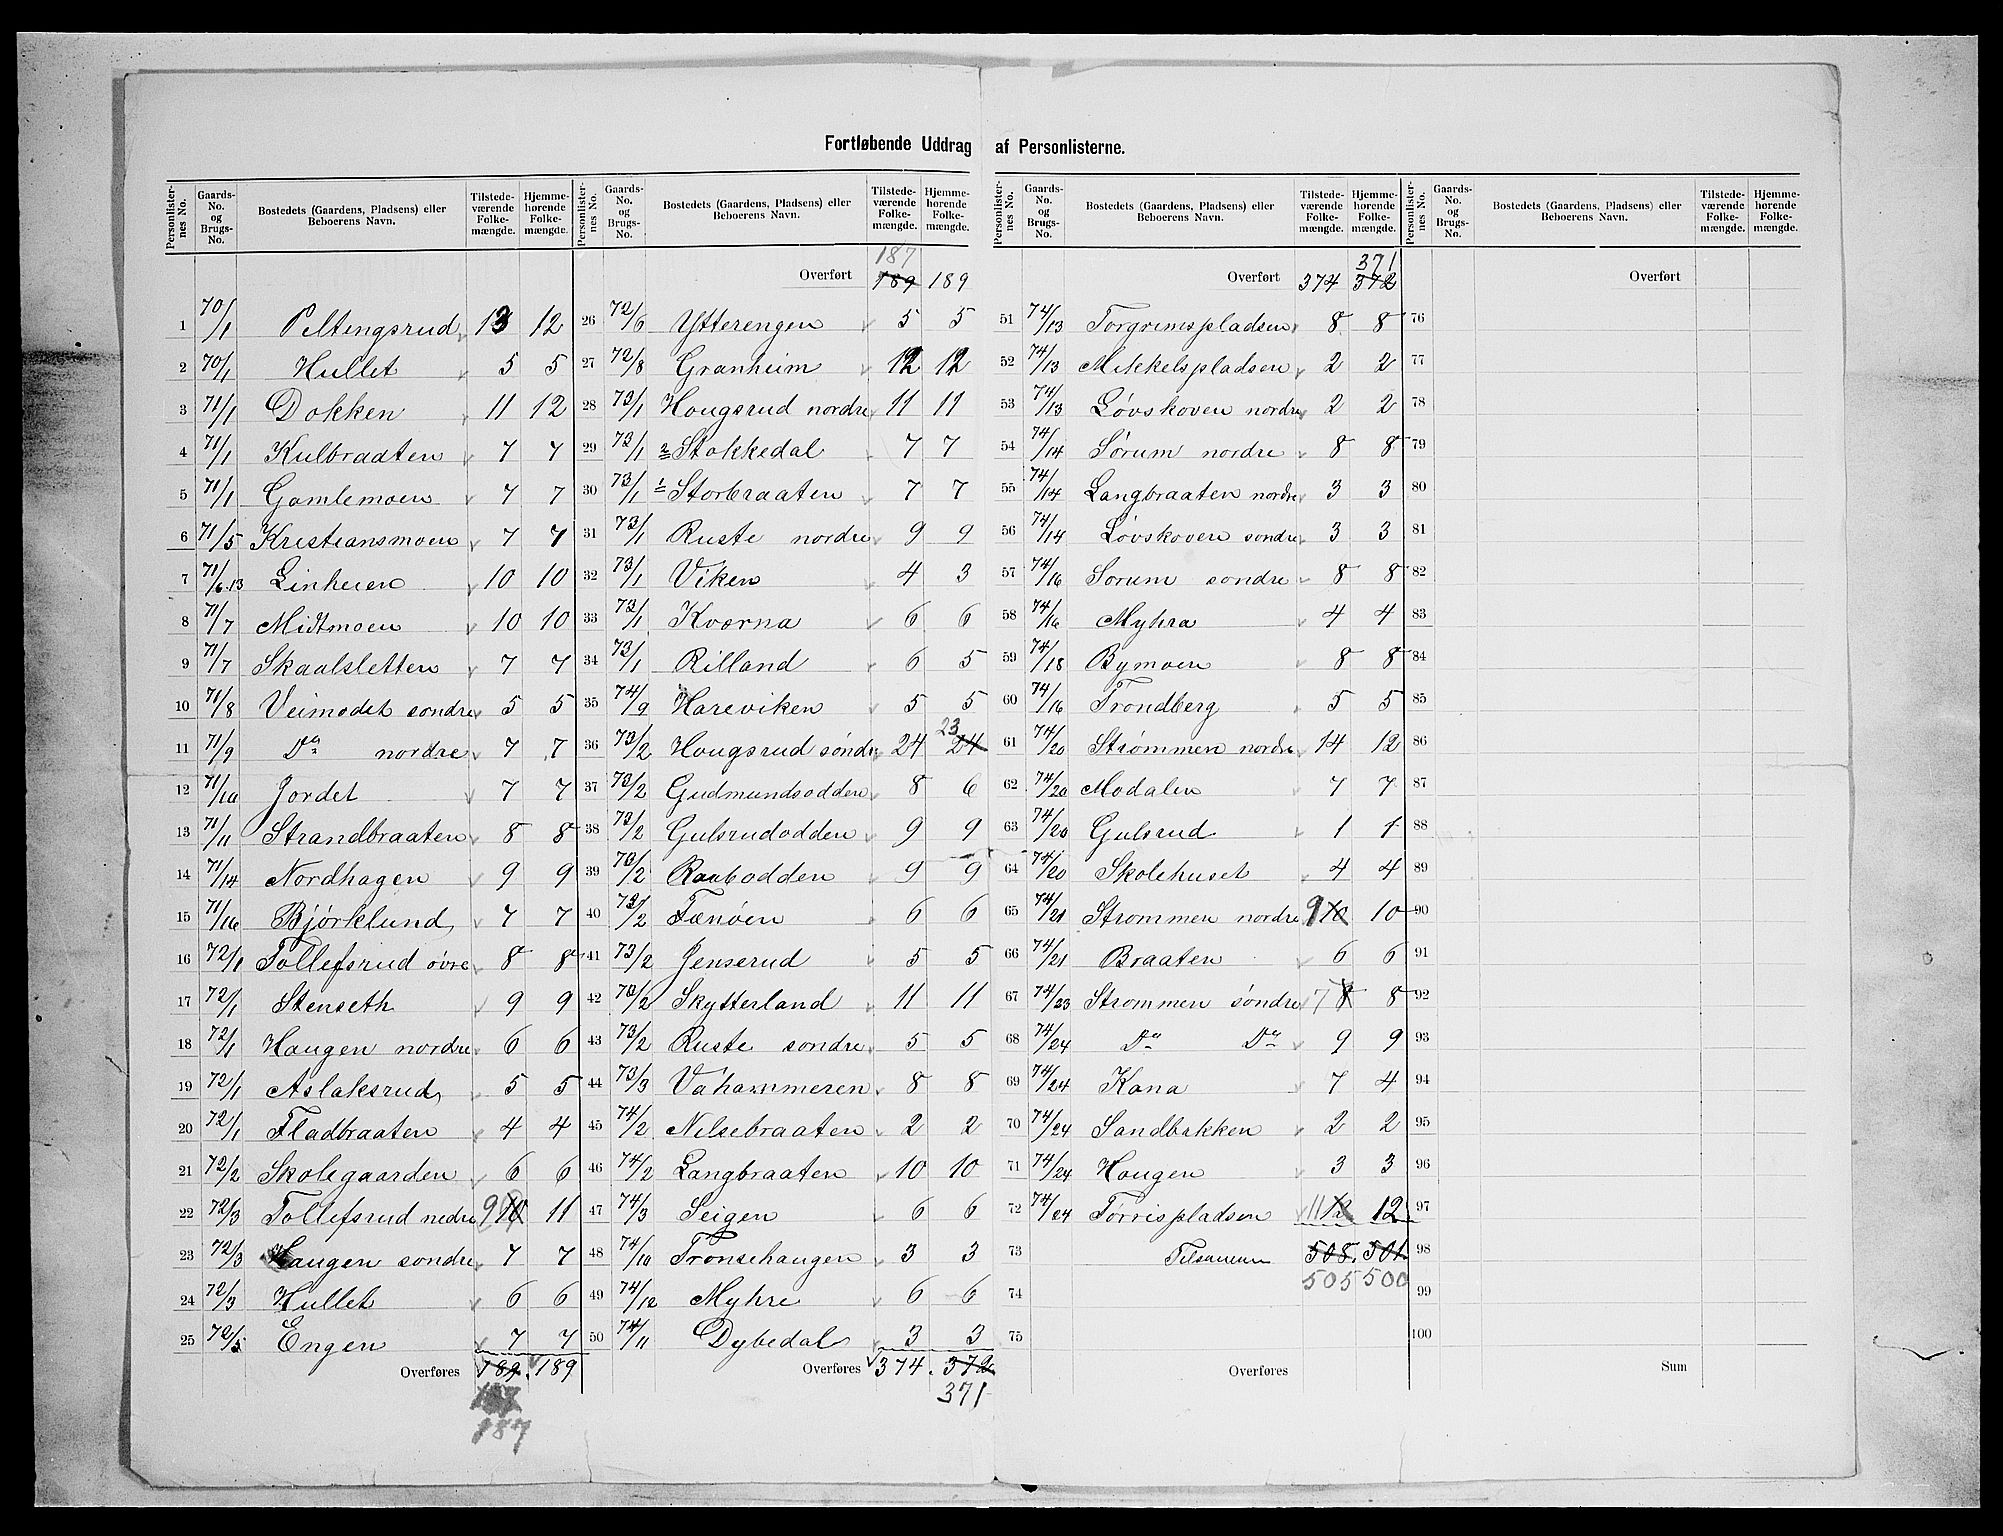 Fortløbende Uddrag af Personlisterne.
Personlister- nes No. | Gaards- No. og Brugs- No. | Bostedets (Gaardens, Pladsens) eller Beboerens Navn. | Tilstede- værende Folke- mængde. | Hjemme- hørende Folke- mængde.
1 70/1 Peltengsrud 13 12
2 70/1 Hullet 5 5
3 71/1 Dokken 11 12
4 71/1 Kulbraaten 7 7
5 71/1 Gamlemoen 7 7
6 71/5 Kristiansmoen 7 7
7 71/6.13 Linheien 10 10
8 71/7 Midtmoen 10 10
9 71/7 Skaalsletten 7 7
10 71/8 Veimodet sondre 5 5
11 71/9 Do nordre 7 7
12 71/10 Jordet 7 7
13 71/11 Strandbraaten 8 8
14 71/14 Nordhagen 9 9
15 71/16 Bjørklund 7 7
16 72/1 Tollefsrud øvre 8 8
17 72/1 Stenseth 9 9
18 72/1 Haugen nordre 6 6
19 72/1 Aslaksrud 5 5
20 72/1 Fladbraaten 4 4
21 72/2 Skolegaarden 6 6
22 72/3 Tollefsrud nedre 9 10 11
23 72/3 Haugen sondre 7 7
24 72/3 Hullet 6 6
25 72/5 Engen 7 7
Overføres 189 189
187
187
Personlister- nes No. | Gaards- No. og Brugs- No. | Bostedets (Gaardens, Pladsens) eller Beboerens Navn. | Tilstede- værende Folke- mængde. | Hjemme- hørende Folke- mængde.
187
Overført 189 189
26 72/6 Ytterengen 5 5
27 72/8 Granheim 12 12
28 73/1 Hougsrud nordre 11 11
29 73/1 2 Stokkedal 7 7
30 73/1 1 Storbraaten 7 7
31 73/1 Ruste nordre 9 9
32 73/1 Viken 4 3
33 73/1 Kværna 6 6
34 73/1 Rilland 6 5
35 74/9 Hareviken 5 5
36 73/2 Hougsrud søndre 24 23 24
37 73/2 Gudmundsodden 8 6
38 73/2 Gulsrudodden 9 9
39 73/2 Raabodden 9 9
40 73/2 Tænøen 6 6
41 73/2 Jenserud 5 5
42 73/2 Skytterland 11 11
43 73/2 Ruste sondre 5 5
44 73/3 Vahammeren 8 8
45 74/2 Nilsebraaten 2 2
46 74/2 Langbraaten 10 10
47 74/3 Seigen 6 6
48 74/10 Tronsehaugen 3 3
49 74/12 Myhre 6 6
50 74/11 Dybedal 3 3
Overføres 374 372
371
Personlister- nes No. | Gaards- No. og Brugs- No. | Bostedets (Gaardens, Pladsens) eller Beboerens Navn. | Tilstede- værende Folke- mængde. | Hjemme- hørende Folke- mængde.
371
Overført 374 372
51 74/13 Torgrimspladsen 8 8
52 74/13 Mikkelspladsen 2 2
53 74/13 Løvskoven nordre 2 2
54 74/14 Sørum nordre 8 8
55 74/14 Langbraaten nordre 3 3
56 74/14 Løvskoven sondre 3 3
57 74/16 Sorum sondre 8 8
58 74/16 Myhra 4 4
59 74/18 Bymoen 8 8
60 74/16 Trondberg 5 5
61 74/20 Strømmen nordre 14 12
62 74/20 Modalen 7 7
63 74/20 Gulsrud 1 1
64 74/20 Skolehuset 4 4
65 74/21 Strommen nordre 9 10 10
66 74/21 Braaten 6 6
67 74/23 Strommen søndre 7 8 8
68 74/24 Do Do 9 9
69 74/24 Kana 7 4
70 74/24 Sandbakken 2 2
71 74/24 Hougen 3 3
72 74/24 Tørrispladsen 11 12 12
73 Tilsammen 508 501
505 500
74
75
Overføres
Personlister- nes No. | Gaards- No. og Brugs- No. | Bostedets (Gaardens, Pladsens) eller Beboerens Navn. | Tilstede- værende Folke- mængde. | Hjemme- hørende Folke- mængde.
Overført
76
77
78
79
80
81
82
83
84
85
86
87
88
89
90
91
92
93
94
95
96
97
98
99
100
Sum